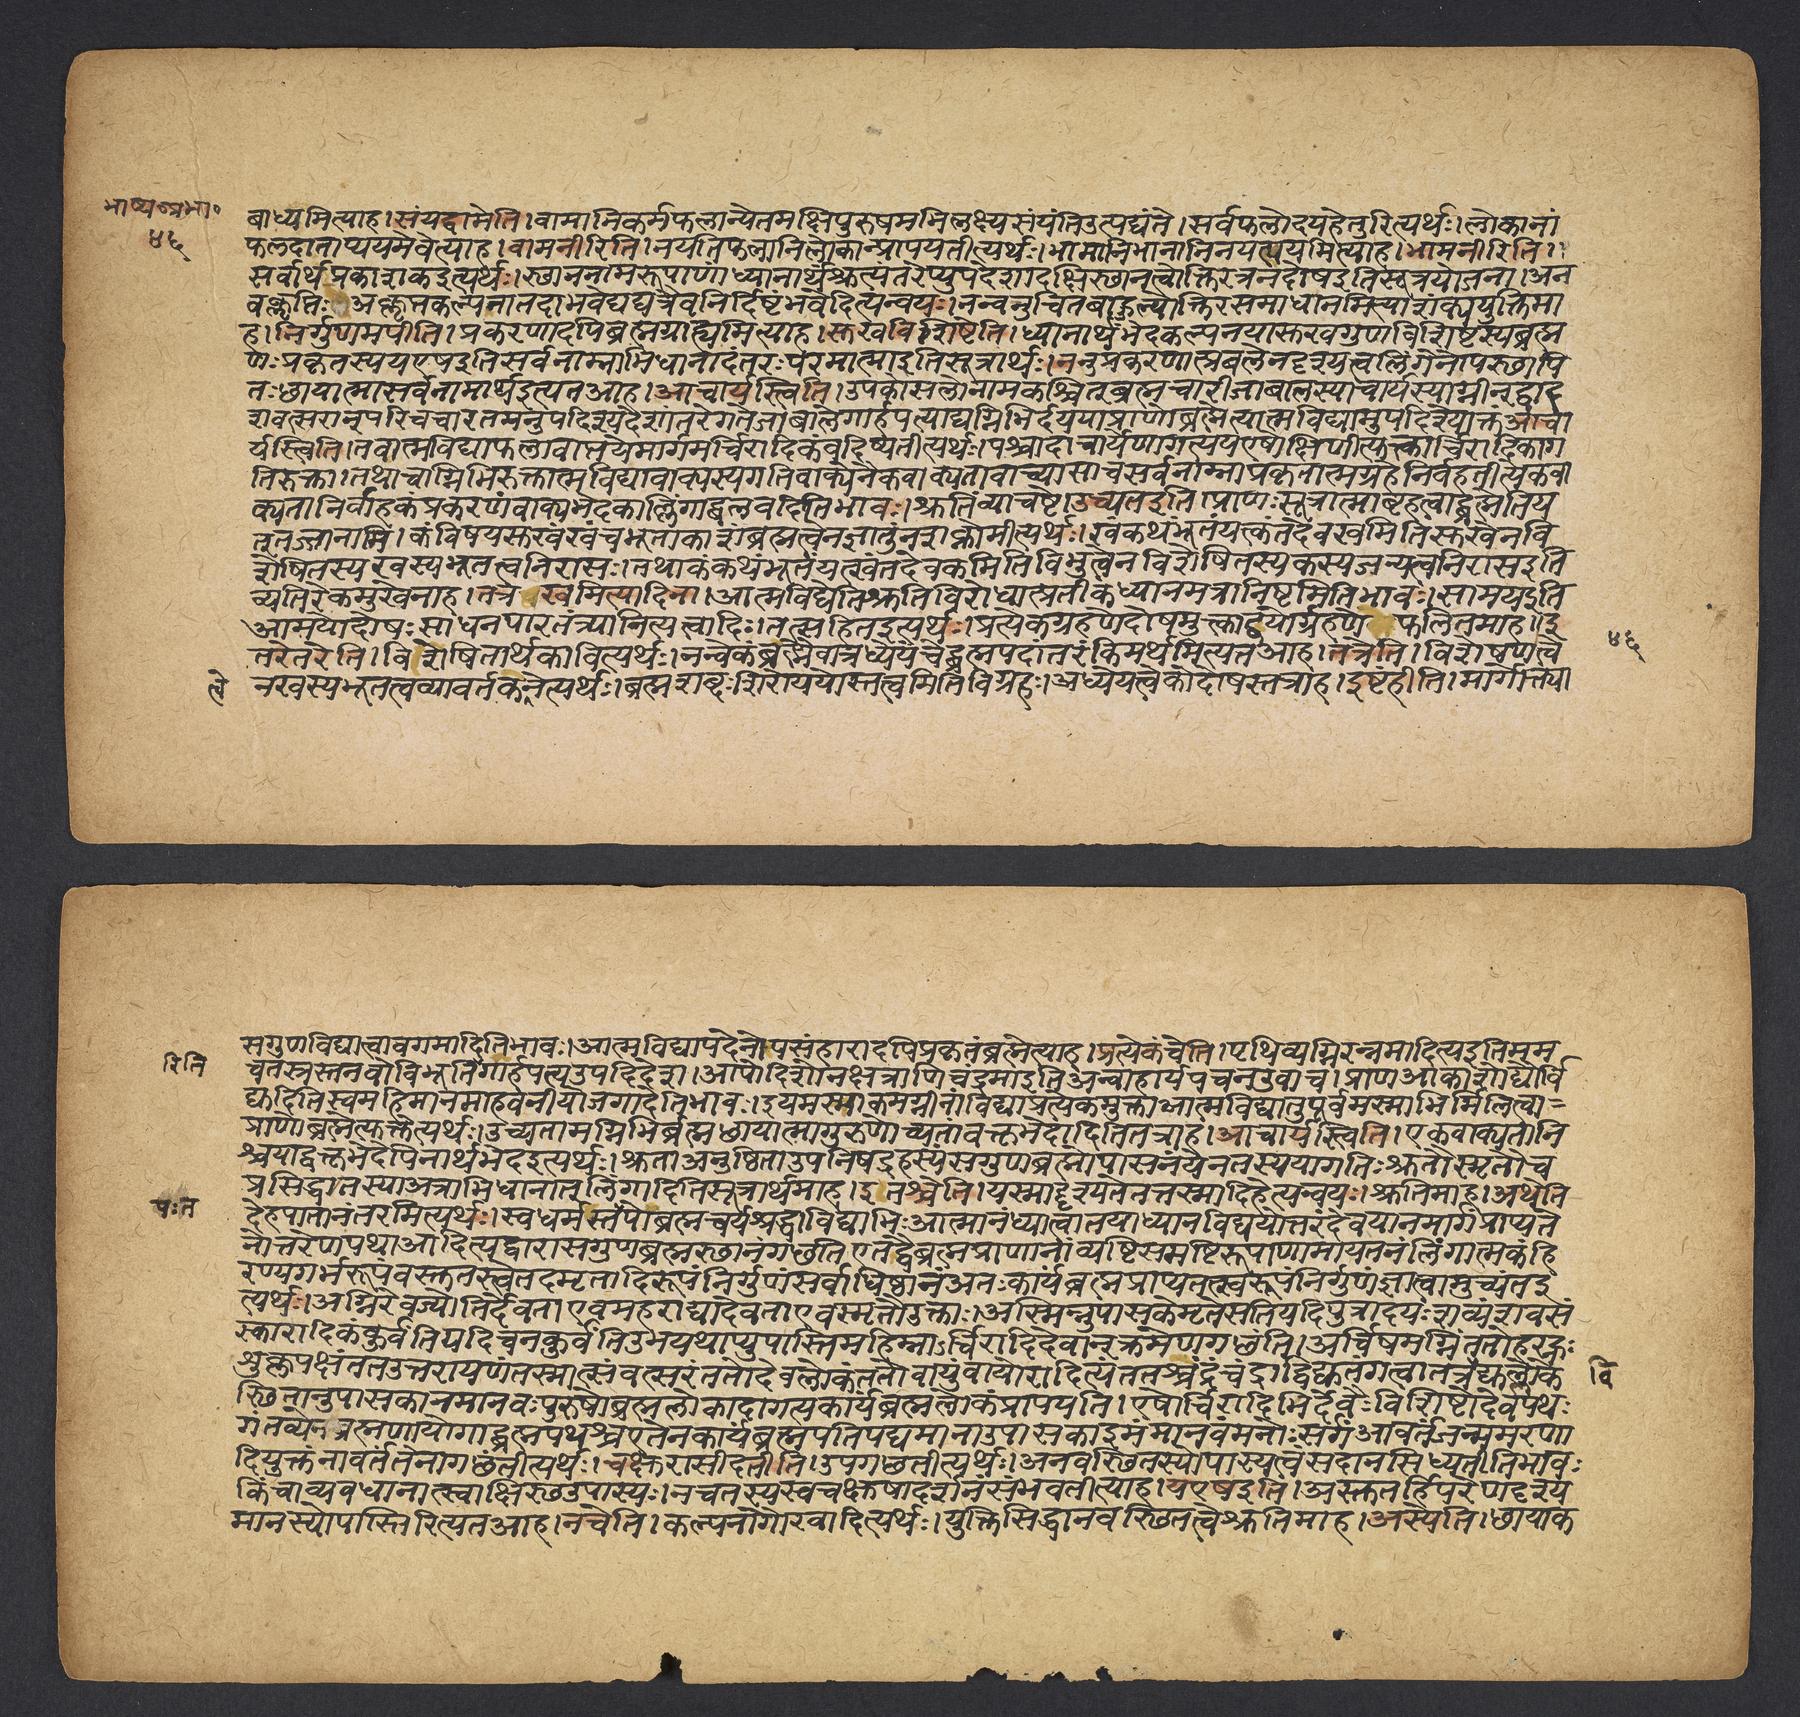 भाष्य०प्रभा०
४६
बाध्यमित्याह।संयद्वामेति।वामानिकर्मफलान्येतमक्षिपुरुषमभिलक्ष्यसंयंतिउत्पद्यंते।सर्वफलोदयहेतुरित्यर्थः।लोकानां
फलदाताप्ययमेवेत्याह।वामनीरिति।नयतिफलानिलोकान्प्रापयतीत्यर्थः।भामानिभानानिनयत्ययमित्याह।भामनीरिति॥
सर्वार्थप्रकाशकइत्यर्थः।स्थाननामरूपाणांध्यानार्थंश्रुत्यंतरेप्युपदेशादक्षिस्थानत्वोक्तिरत्रनदोषइतिसूत्रयोजना।अन
वक्लृप्तिः अक्लृप्तकल्पनातदाभवेद्यद्यत्रैवनिर्दिष्टंभवेदित्यन्वयः।नन्वनुचितबाहुल्योक्तिरसमाधानमित्याशंक्ययुक्तिमा
ह।निर्गुणमपीति।प्रकरणादपिब्रह्मग्राह्यमित्याह।सुखविशिष्टेति।ध्यानार्थंभेदकल्पनयासुखगुणविशिष्टस्यब्रह्म
णःप्रकृतस्ययएषइतिसर्वनाम्नाभिधानादंतरःपरमात्माइतिसूत्रार्थः।ननुप्रकरणात्प्रबलेनदृश्यत्वलिंगेनोपस्थापि
तःछायात्मासर्वनामार्थइत्यतआह।आचार्यस्त्विति।उपकोसलोनामकश्चित्ब्रह्मचारीजाबालस्याचार्यस्याग्नीन्द्वाद
शवत्सरान्परिचचारतमनुपदिश्यदेशांतरेगतेजाबालेगार्हपत्याद्यग्निभिर्दययाप्राणोब्रह्मेत्यात्मविद्यामुपदिश्योक्तंआचा
र्यस्त्विति।तवात्मविद्याफलावाप्तयेमार्गमर्चिरादिकंवदिष्यतीत्यर्थः।पश्चादाचार्येणागत्ययएषोक्षिणीत्युक्त्वार्चिरादिकाग
तिरुक्ता।तथाचाग्निभिरुक्तात्मविद्यावाक्यस्यगतिवाक्येनैकवाक्यतावाच्यासाचसर्वनाम्नाप्रकृतात्मग्रहेनिर्वहतीत्येकवा
क्यतानिर्वाहकंप्रकरणंवाक्यभेदकाल्लिंगाद्बलवदितिभावः।श्रुतिंव्याचष्टे।उच्यतइति।प्राणःसूत्रात्माबृहत्वाद्ब्रह्मेतिय
त्तज्जानामि।कंविषयसुखंखंचभूताकाशंब्रह्मत्वेनज्ञातुंनशक्नोमीत्यर्थः।खंकथंभूतंयत्कंतदेवखमितिसुखेनवि
शेषितस्यखस्यभूतत्वनिरासः।तथाकंकथंभूतंयत्खंतदेवकमितिविभुत्वेनविशेषितस्यकस्यजन्यत्वनिरासइति
व्यतिरेकमुखेनाह।तत्र खमित्यादिना।आत्मविद्येतिश्रुतिविरोधात्प्रतीकध्यानमत्रानिष्टमितिभावः।सामयइति
आमयोदोषःसाधनपारतंत्र्यानित्यत्वादिः।तत्सहितइत्यर्थः।प्रत्येकग्रहणेदोषमुक्त्वाद्वयोर्ग्रहणे फलितमाह।इ
तरेतरेति।विशेषितार्थकावित्यर्थः।नन्वेकंब्रह्मैवात्रध्येयंचेद्ब्रह्मपदांतरंकिमर्थमित्यतआह।तत्रेति।विशेषणत्वे
ले
नखस्यभूतत्वव्यावर्तकत्वेनेत्यर्थः।ब्रह्मशब्दःशिरोययोस्तत्त्वमितिविग्रहः।अध्येयत्वेकोदोषस्तत्राह।इष्टंहीति।मार्गोक्त्या
४६
सगुणविद्यात्वावगमादितिभावः।आत्मविद्यापदेनोपसंहारादपिप्रकृतंब्रह्मेत्याह।प्रत्येकंचेति।पृथिव्यग्निरन्नमादित्यइतिमम
रिति
चतस्रस्तनवोविभूतिर्गार्हपत्यउपदिदेश।आपोदिशोनक्षत्राणिचंद्रमाइतिअन्वाहार्यपचनउवाच।प्राणआकाशोद्यौर्वि
द्युदितिस्वमहिमानमाहवनीयोजगादेतिभावः।इयमस्माकमग्नीनांविद्याप्रत्येकमुक्ताआत्मविद्यातुपूर्वमस्माभिर्मिलित्वा=
प्राणोब्रह्मेत्युक्तेत्यर्थः।उच्यतामग्निभिर्ब्रह्मछायात्मागुरुणोच्यतांवक्तृभेदादितितत्राह।आचार्यस्त्विति।एकवाक्यतानि
श्चयाद्वक्तृभेदेपिनार्थभेदइत्यर्थः।श्रुताअनुष्ठिताउपनिषद्रहस्यंसगुणब्रह्मोपासनंयेनतस्ययागतिःश्रुतौस्मृतौच
प्रसिद्धातस्याअत्राभिधानात्लिंगादितिसूत्रार्थमाह।इतश्चेति।यस्माद्दृश्यतेतत्तस्मादिहेत्यन्वयः।श्रुतिमाह।अथेति
षःत
देहपातानंतरमित्यर्थः।स्वधर्मस्तपोब्रह्मचर्यश्रद्धाविद्याभिःआत्मानंध्यात्वातयाध्यानविद्ययोत्तरंदेवयानमार्गंप्राप्यते
नोत्तरेणपथाआदित्यद्वारासगुणब्रह्मस्थानंगछंति।एतद्वैब्रह्मप्राणानांव्यष्टिसमष्टिरूपाणामायतनंलिंगात्मकंहि
रण्यगर्भरूपंवस्तुतस्त्वेतदमृतादिरूपंनिर्गुणंसर्वाधिष्ठानंअतःकार्यंब्रह्मप्राप्यतत्स्वरूपंनिर्गुणंज्ञात्वामुच्यंतइ
त्यर्थः।अग्निरेवज्योतिर्देवताएवमहराद्यादेवताएवस्मृतौउक्ताः।अस्मिन्नुपासकेमृतेसतियदिपुत्रादयःशव्यंशवसं
स्कारादिकंकुर्वंतियदिचनकुर्वंतिउभयथाप्युपास्तिमहिम्नाऽर्चिरादिदेवान्क्रमेणगछंति।अर्चिषमग्निंततोहरह्नः
शुक्लपक्षंततउत्तरायणंतस्मात्संवत्सरंततोदेवलोकंततोवायुंवायोरादित्यंततश्चंद्रंचंद्राद्विद्युतंगत्वातत्रविद्युल्लोके
वि
स्थितानुपासकानमानवःपुरुषोब्रह्मलोकादागत्यकार्यब्रह्मलोकंप्रापयति।एषोर्चिरादिभिर्देवैःविशिष्टोदेवपथः
गंतव्येनब्रह्मणायोगाद्ब्रह्मपथश्चएतेनकार्यंब्रह्मप्रतिपद्यमानाउपासकाइमंमानवंमनोःसर्गंआवर्तंजन्ममरणा
दियुक्तंनावर्तंतेनागछंतीत्यर्थः।चक्षुरासीदतीति।उपगछतीत्यर्थः।अनवस्थितस्योपास्यत्वंसदानसिध्यतीतिभावः
किंचाव्यवधानात्स्वाक्षिस्थउपास्यः।नचतस्यस्वचक्षुषादर्शनंसंभवतीत्याह।यएषइति।अस्तुतर्हिपरेणदृश्य
मानस्योपास्तिरित्यतआह।नचेति।कल्पनागौरवादित्यर्थः।युक्तिसिद्धानवस्थितत्वेश्रुतिमाह।अस्येति।छायाक